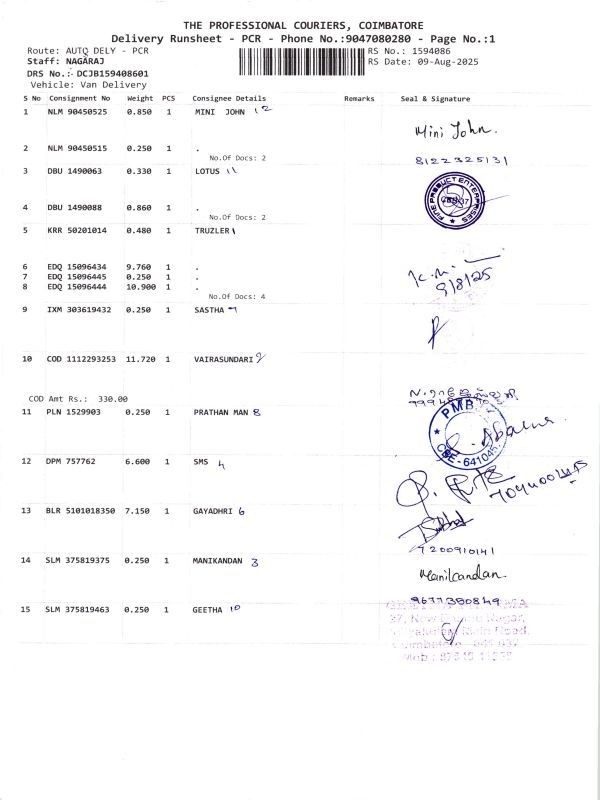 THE PROFESSIONAL COURIERS, COIMBATORE
Delivery Runsheet - PCR - Phone No.:9047080280 - Page No.:1
Route: AUTO DELY - PCR
RS No.: 1594086
Staff: NAGARAJ
RS Date: 09-Aug-2025
DRS No.: DCJB159408601
Vehicle: Van Delivery
S No Consignment No Weight PCS Consignee Details Remarks Seal & Signature
1 NLM 90450525 0.850 1 MINI JOHN 12
Mini John.
2 NLM 90450515 0.250 1 .
No.Of Docs: 2
8122325131
3 DBU 1490063 0.330 1 LOTUS 11
FINE PRODUCT ENTERPRISES
4 DBU 1490088 0.860 1 .
No.Of Docs: 2
5 KRR 50201014 0.480 1 TRUZLER 1
6 EDQ 15096434 9.760 1 .
7 EDQ 15096445 0.250 1 .
8 EDQ 15096444 10.900 1 .
No.Of Docs: 4
9/8/25
9 IXM 303619432 0.250 1 SASTHA 7
10 COD 1112293253 11.720 1 VAIRASUNDARI 2
COD Amt Rs.: 330.00
11 PLN 1529903 0.250 1 PRATHAN MAN 8
PMB
CBE-641045
12 DPM 757762 6.600 1 SMS 4
13 BLR 5101018350 7.150 1 GAYADHRI 6
7200910141
14 SLM 375819375 0.250 1 MANIKANDAN 3
Manikandan.
9677380849
15 SLM 375819463 0.250 1 GEETHA 10